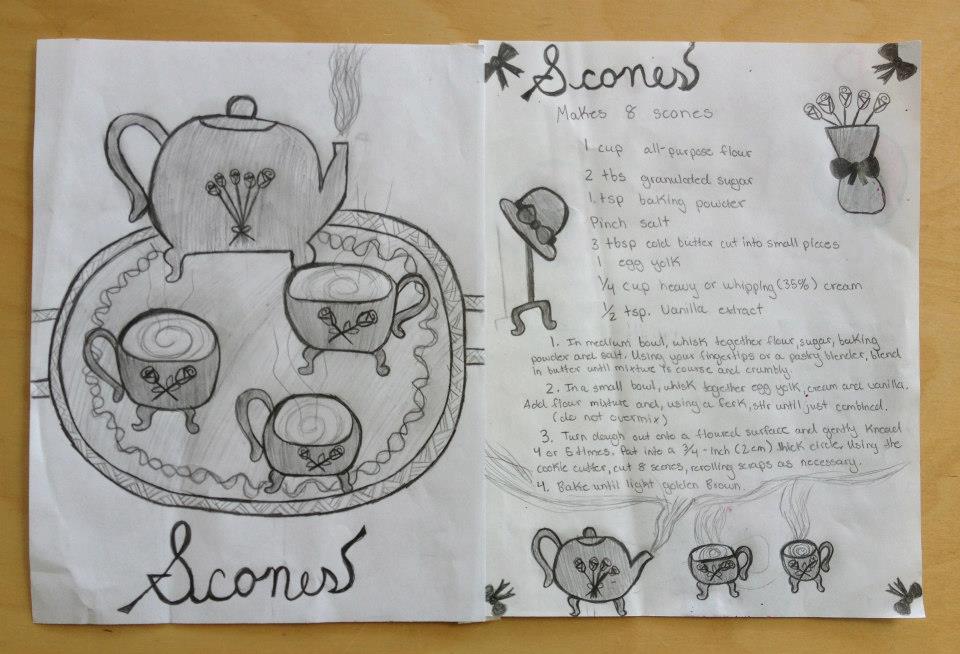 Scones
Scones
Makes 8 scones
1 cup all-purpose flour
2 tbs granulated sugar
1 tsp baking powder
Pinch salt
3 tbsp cold butter cut into small pieces
1 egg yolk
1/4 cup heavy or whipping (35%) cream
1/2 tsp. Vanilla extract
1. In medium bowl, whisk together flour, sugar, baking
powder and salt. Using your fingertips or a pastry blender, blend
in butter until mixture is course and crumbly.
2. In a small bowl, whisk together egg yolk, cream and vanilla.
Add flour mixture and, using a fork, stir until just combined.
(do not overmix)
3. Turn dough out onto a floured surface and gently Knead
4 or 5 times. Pat into a 3/4-inch (2cm) thick circle. Using the
cookie cutter, cut 8 scones, rerolling scraps as necessary.
4. Bake until light golden Brown.